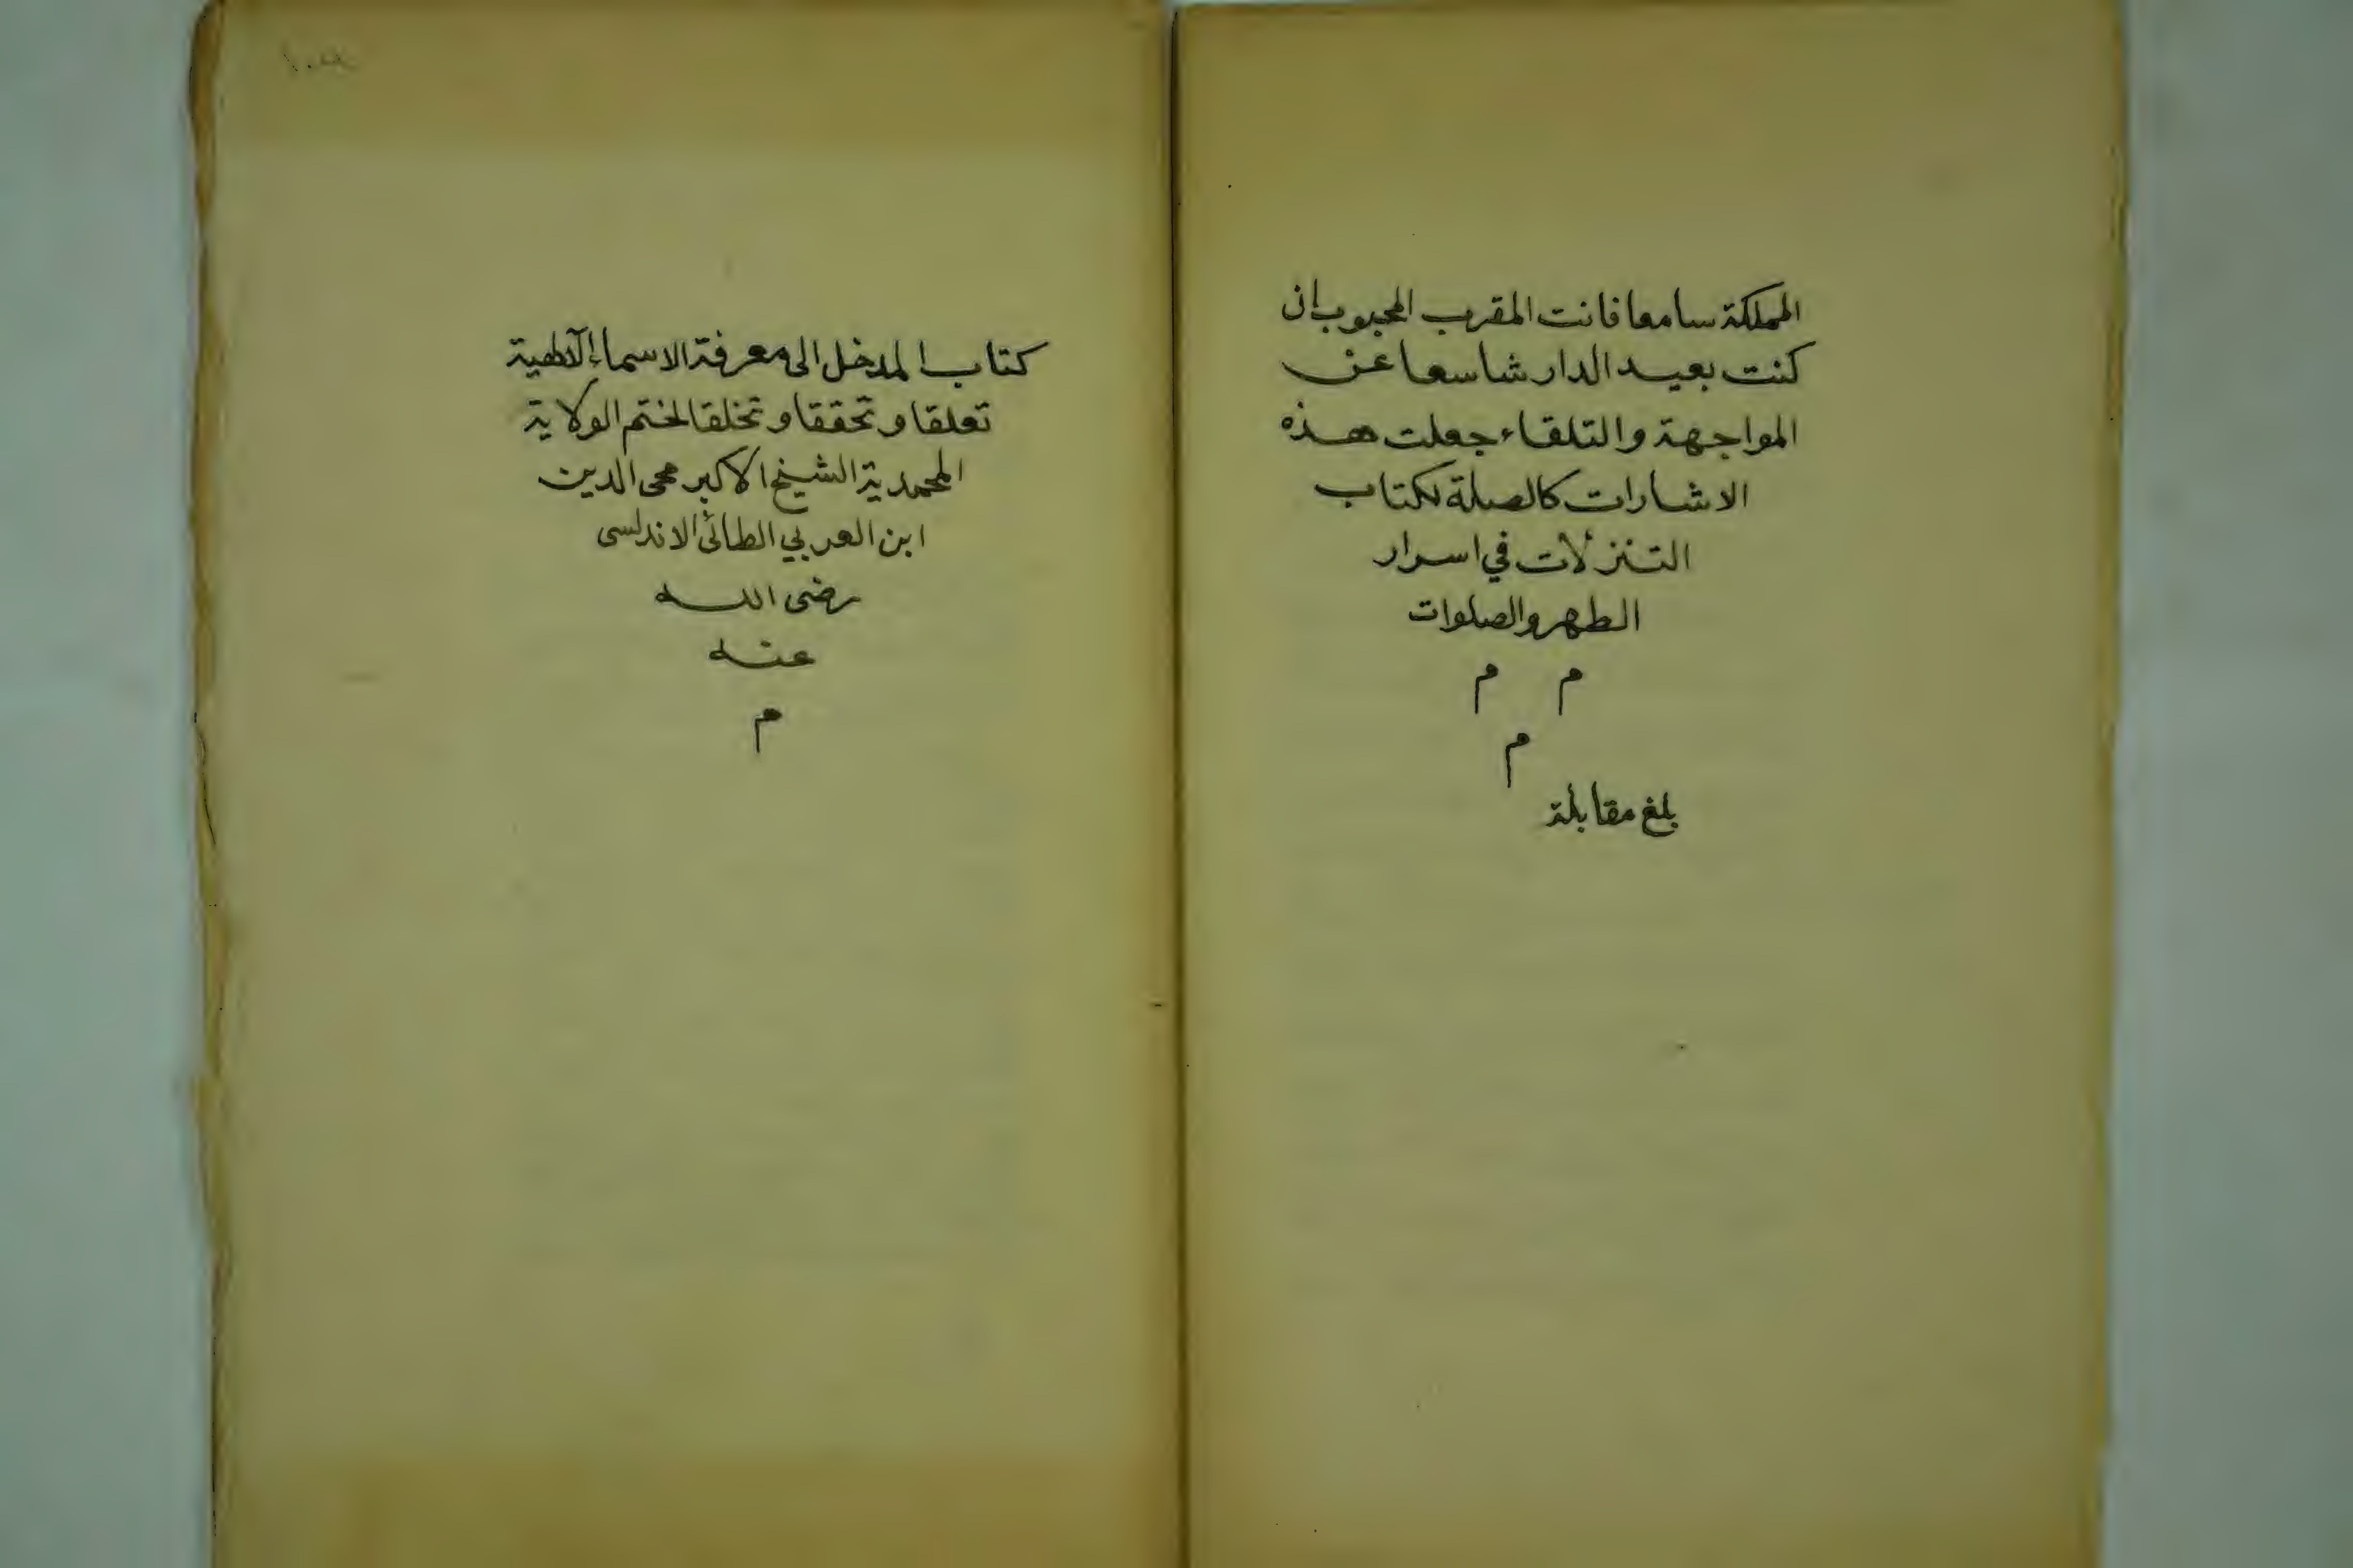 المملكة سامعا فانت المقرب المحبوب إن
كنت بعيد الدار شاسعا عن
المواجهة والتلقاء جعلت هذه
الاشارات كالصلة لكتاب
التنزلات في اسرار
الطهر والصلوات
م م
م
بلغ مقابلة
كتاب المدخل الى معرفة الاسماء الالهية
تعلقا و تحققا و تخلقا لختم الولاية
المحمدية الشيخ الاكبر محى الدين
ابن العربي الطائى الاندلسى
رضى الله
عنه
م